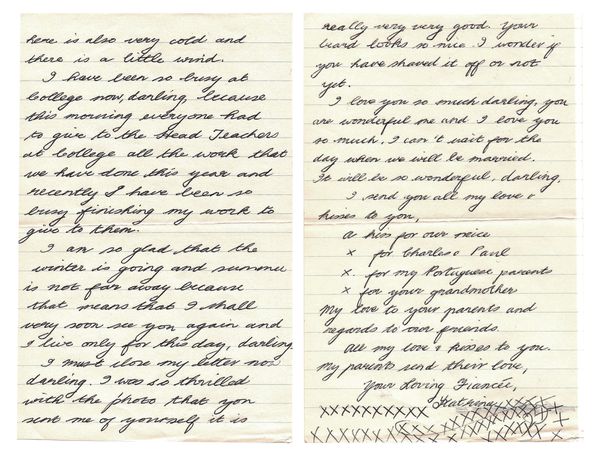 here is also very cold and
there is a little wind.
I have been so busy at
College now, darling, because
this morning everyone had
to give to the Head Teachers
at College all the work that
we have done this year and
recently I have been so
busy finishing my work to
give to them.
I am so glad that the
winter is going and summer
is not far away because
that means that I shall
very soon see you again and
I live only for this day, darling
I must close my letter now
darling. I was so thrilled
with the photo that you
sent me of yourself it is
really very very good. Your
beard looks so nice. I wonder if
you have shaved it off or not
yet.
I love you so much darling, you
are wonderful me and I love you
so much, I can't wait for the
day when we will be married.
It will be so wonderful, darling,
I send you all my love &
kisses to you,
a kiss for our neice
x for Charles & Paul
x. for my Portuguese parents
x for your grandmother
My love to your parents and
regards to our friends.
All my love & kisses to you.
My parents send their love,
Your Loving Fiancée,
Katharine